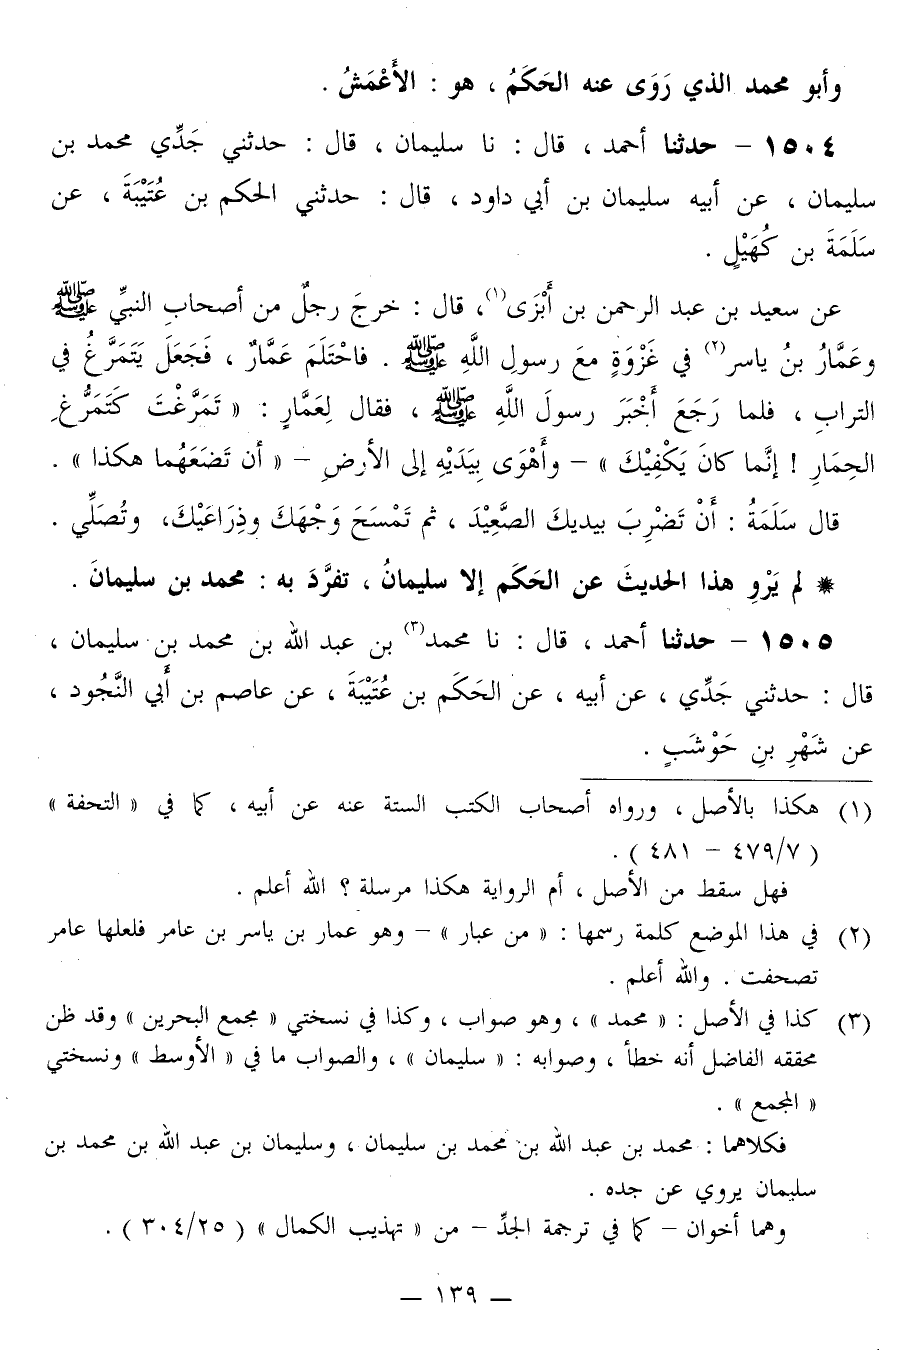 وأبو محمد الذي رَوَى عنه الحَكَمُ ، هو : الأَعْمَشُ .
١٥٠٤ – حدثنا أحمد ، قال : نا سليمان ، قال : حدثني جَدِّي محمد بن
سليمان ، عن أبيه سليمان بن أبي داود ، قال : حدثني الحكم بن عُتَيْبَةَ ، عن
سَلَمَةَ بن كُهَيْلٍ .
عن سعيد بن عبد الرحمن بن أَبْزَى(١)، قال : خرجَ رجلٌ من أصحابِ النبيِّ ﷺ
وعَمَّارُ بنُ ياسر(٢) في غَزْوَةٍ معَ رسولِ اللَّهِ ﷺ . فاحْتَلَمَ عَمَّارٌ ، فَجَعَلَ يَتَمَرَّغُ في
الترابِ ، فلما رَجَعَ أَخْبَرَ رسولَ اللَّهِ ﷺ ، فقال لِعَمَّارٍ : « تَمَرَّغْتَ كَتَمَرُّغِ
الحِمَارِ ! إنَّما كانَ يَكْفِيْكَ » – وأَهْوَى بِيَدَيْهِ إلى الأرضِ – « أن تَضَعَهُما هكذا » .
قال سَلَمَةُ : أَنْ تَضْرِبَ بيديكَ الصَّعِيْدَ ، ثم تَمْسَحَ وَجْهَكَ وذِرَاعَيْكَ، وتُصَلِّي .
* لم يَرْوِ هذا الحديثَ عن الحَكَم إلا سليمانُ ، تفرَّدَ به : محمد بن سليمانَ .
١٥٠٥ – حدثنا أحمد ، قال : نا محمد(٣) بن عبد الله بن محمد بن سليمان ،
قال : حدثني جَدِّي ، عن أبيه ، عن الحَكَم بن عُتَيْبَةَ ، عن عاصم بن أَبي النَّجُود ،
عن شَهْرِ بنِ حَوْشَبٍ .
(١) هكذا بالأصل ، ورواه أصحاب الكتب الستة عنه عن أبيه ، كما في « التحفة »
( ٤٧٩/٧ – ٤٨١ ) .
فهل سقط من الأصل ، أم الرواية هكذا مرسلة ؟ الله أعلم .
(٢) في هذا الموضع كلمة رسمها : « من عبار » – وهو عمار بن ياسر بن عامر فلعلها عامر
تصحفت . والله أعلم .
(٣) كذا في الأصل : « محمد » ، وهو صواب ، وكذا في نسختي « مجمع البحرين » وقد ظن
محققه الفاضل أنه خطأ ، وصوابه : « سليمان » ، والصواب ما في « الأوسط » ونسختي
« المجمع » .
فكلاهما : محمد بن عبد الله بن محمد بن سليمان ، وسليمان بن عبد الله بن محمد بن
سليمان يروي عن جده .
وهما أخوان – كما في ترجمة الجدِّ – من « تهذيب الكمال » ( ٣٠٤/٢٥ ) .
– ١٣٩ –